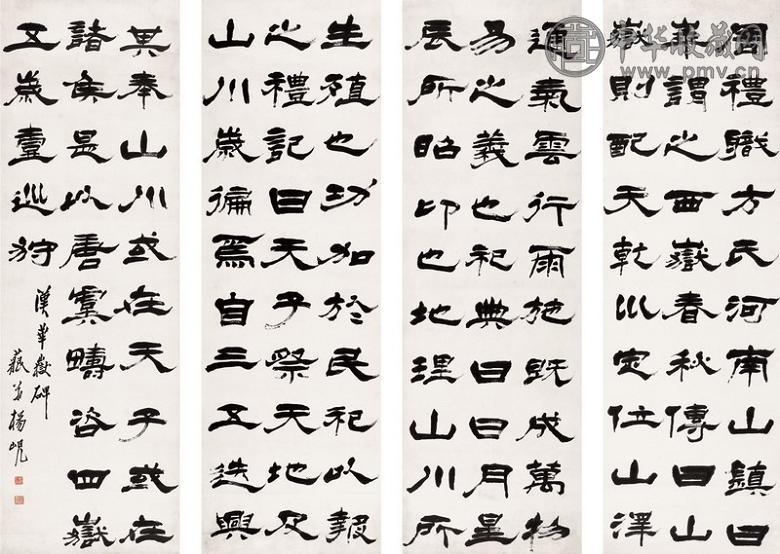 周禮職方氏河南山鎮曰
華謂之西嶽春秋傳曰山
嶽則配天乾以定位山澤
通氣雲行雨施既成萬物
易之義也祀典曰日月星
辰所昭卬也地理山川所
生殖也功加於民祀以報
之禮記曰天子祭天地及
山川歲徧焉自三五迭興
其奉山川或在天子或在
諸侯是以唐虞疇咨四嶽
五歲壹巡狩
漢華嶽碑
藐翁楊峴
中华收藏网
www.pmv.cn